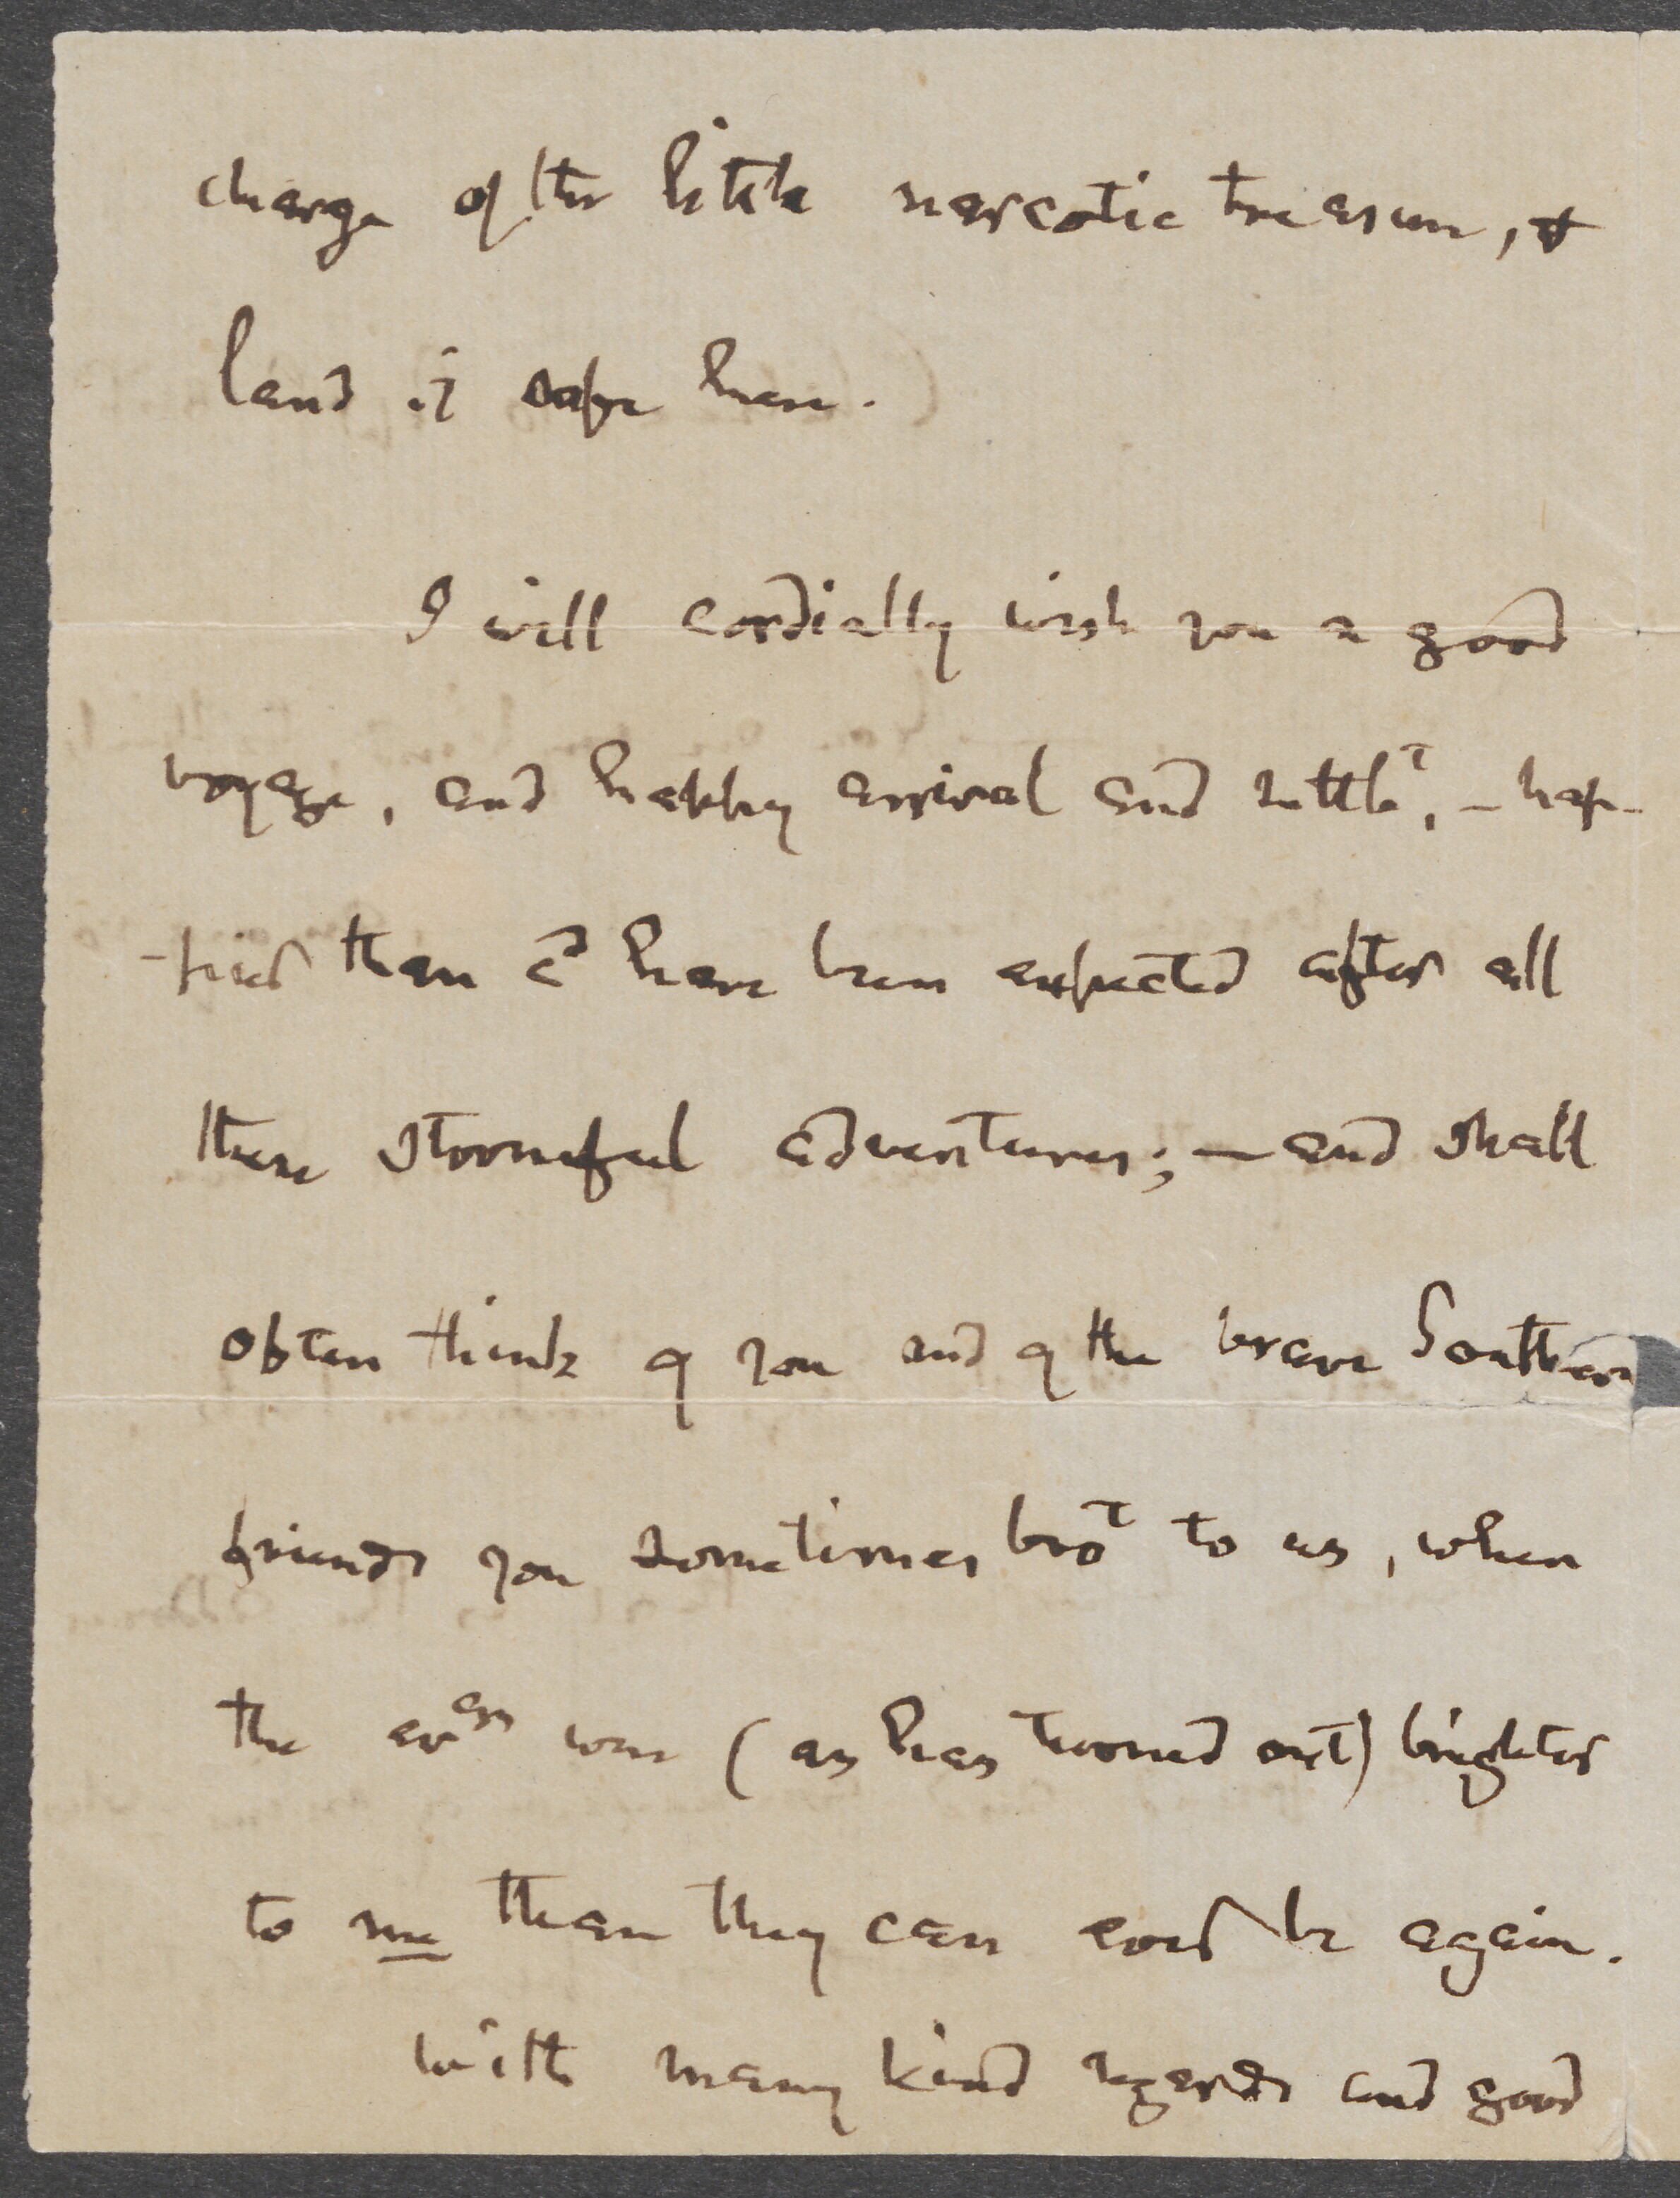 charge of the little narcotic treasure, &
land it safe here.
I will cordially wish you a good
voyage, and happy arrival and settlet, – hap-
-pier than cd have been expected after all
these stormful adventures; – and shall
often think of you and of the brave Southern
friends you sometimes brot to us, when
the evgs were (as has turned out) brighter
to me than they can ever be again.
With many kind regards and good